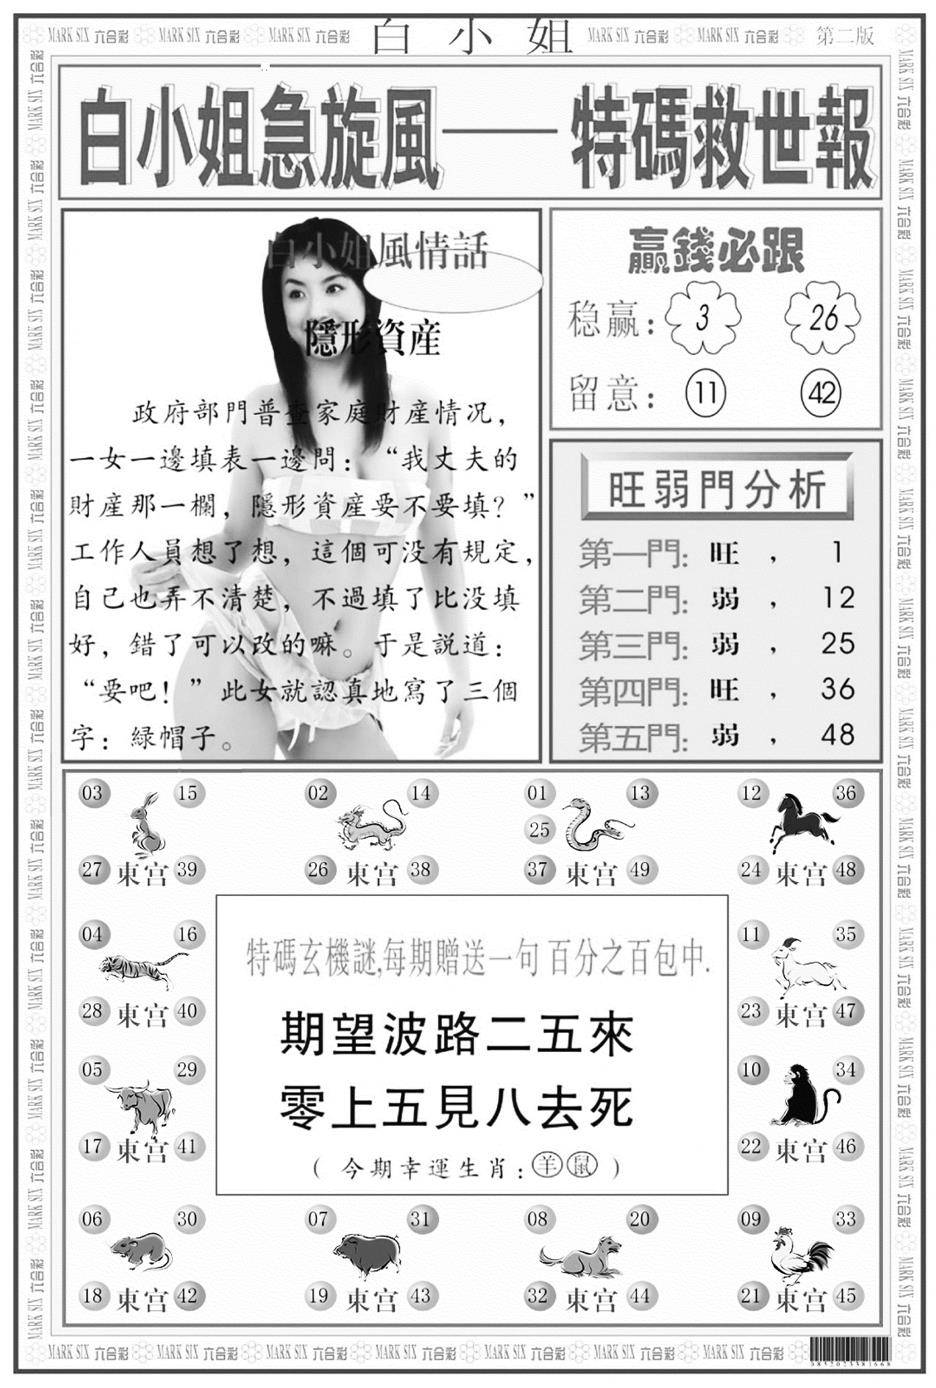 MARK SIX 六合彩 MARK SIX 六合彩 MARK SIX 六合彩 白小姐 MARK SIX 六合彩 MARK SIX 六合彩 第二版
白小姐急旋風——特碼救世報
白小姐風情話
隱形資産
政府部門普查家庭財産情况，
一女一邊填表一邊問：“我丈夫的
財産那一欄，隱形資産要不要填？”
工作人員想了想，這個可没有規定，
自己也弄不清楚，不過填了比没填
好，錯了可以改的嘛。于是説道：
“要吧！”此女就認真地寫了三個
字：緑帽子。
贏錢必跟
稳赢：3 26
留意：11 42
旺弱門分析
第一門：旺，1
第二門：弱，12
第三門：弱，25
第四門：旺，36
第五門：弱，48
03 15 02 14 01 13 12 36
25
27 東宫 39 26 東宫 38 37 東宫 49 24 東宫 48
04 16 11 35
28 東宫 40 23 東宫 47
05 29 10 34
17 東宫 41 22 東宫 46
特碼玄機謎,每期贈送一句百分之百包中.
期望波路二五來
零上五見八去死
（今期幸運生肖：羊鼠）
06 30 07 31 08 20 09 33
18 東宫 42 19 東宫 43 32 東宫 44 21 東宫 45
MARK SIX 六合彩 MARK SIX 六合彩 MARK SIX 六合彩 MARK SIX 六合彩 MARK SIX 六合彩 MARK SIX 六合彩 MARK SIX 六合彩